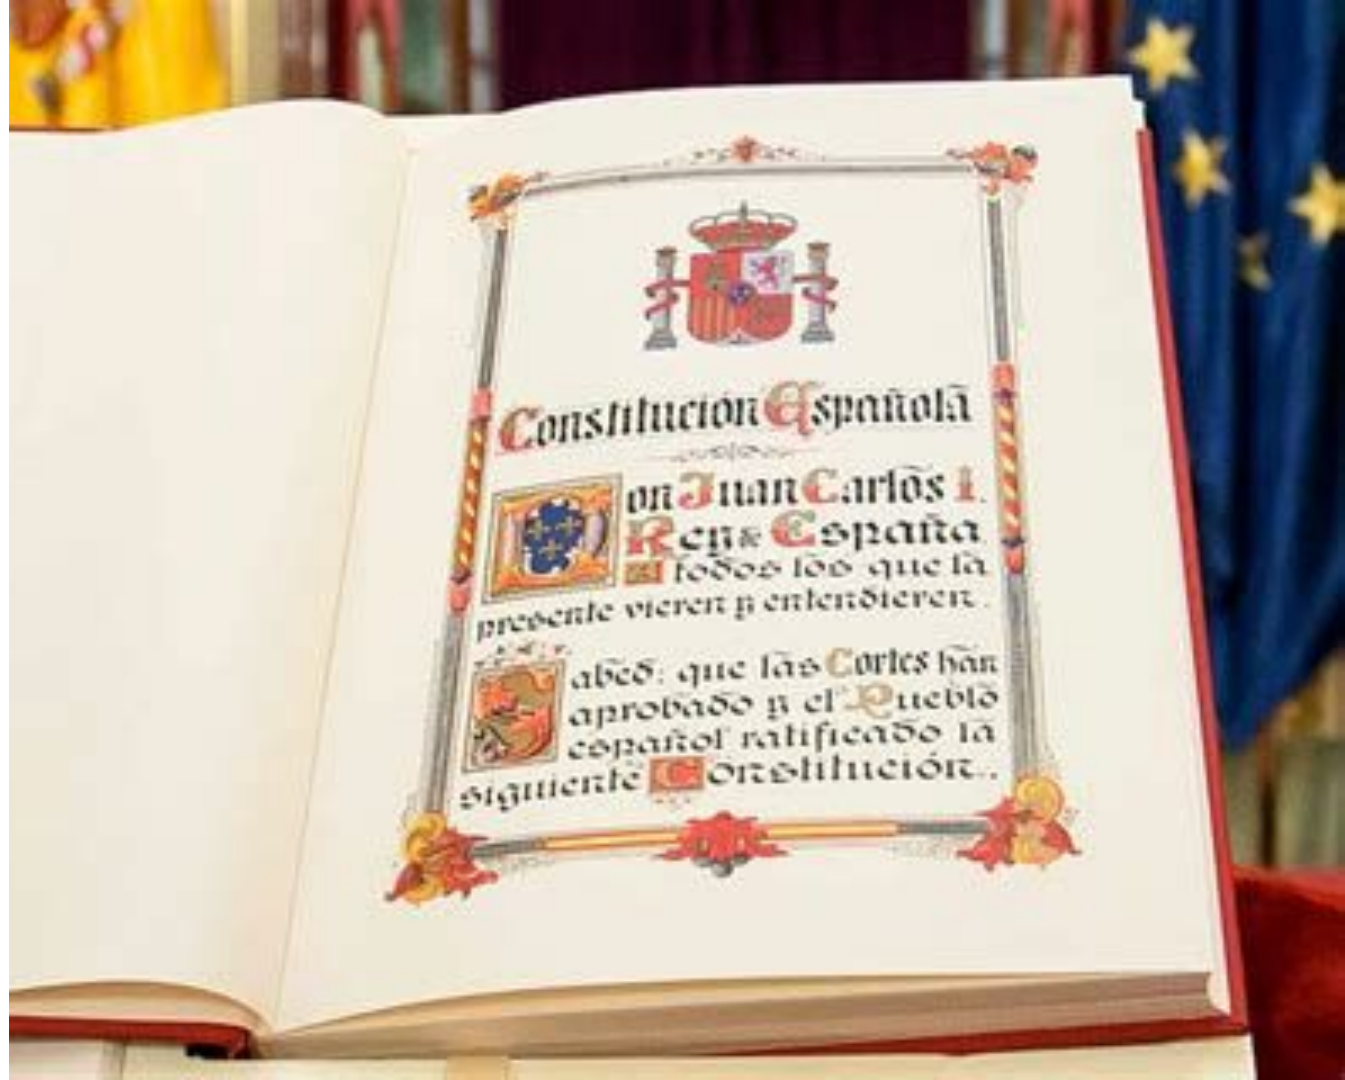 Constitución Española
Don Juan Carlos I,
Rey de España,
A todos los que la
presente vieren y entendieren,
Sabed: que las Cortes han
aprobado y el Pueblo
español ratificado la
siguiente Constitución..